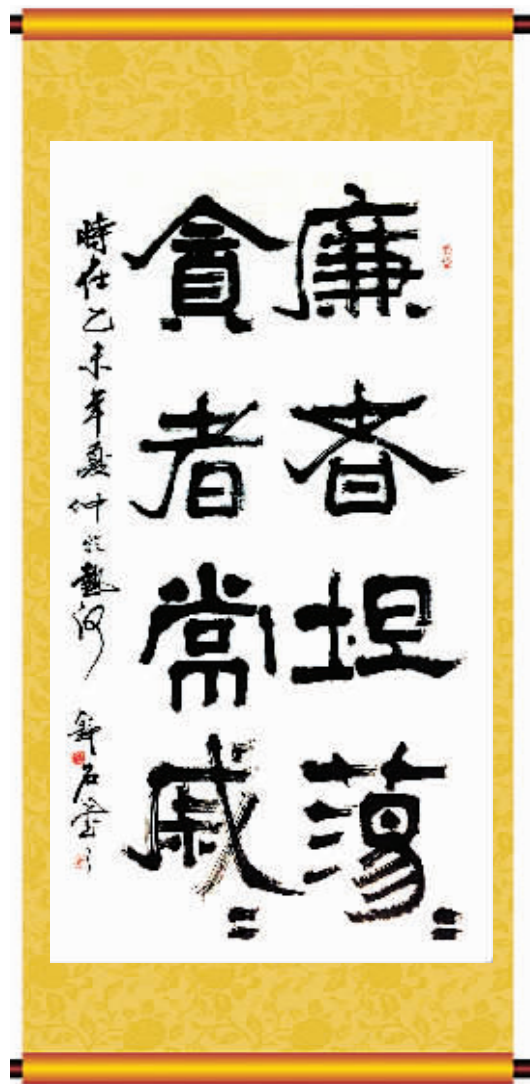 廉者坦蕩〻
貪者常戚〻
時在乙未年夏仲於熱河
石